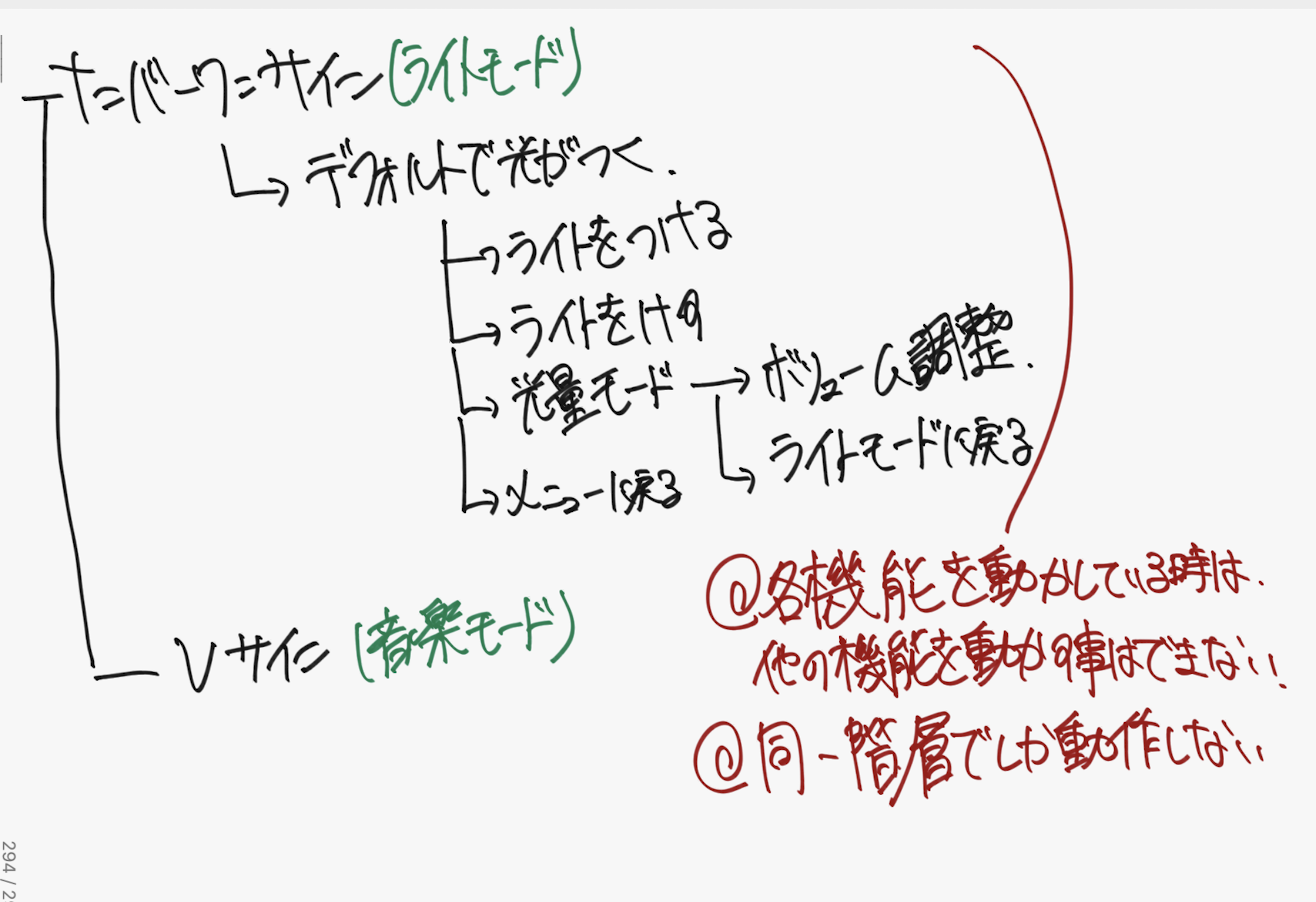 ナンバーワンサイン(ライトモード)
デフォルトで光がつく.
ライトをつける
ライトをけす
光量モード → ボリューム調整.
ライトモードに戻る
メニューに戻る
Vサイン (音楽モード)
@各機能を動かしている時は.
他の機能を動かす事はできない!
@同一階層でしか動作しない
294 / 2